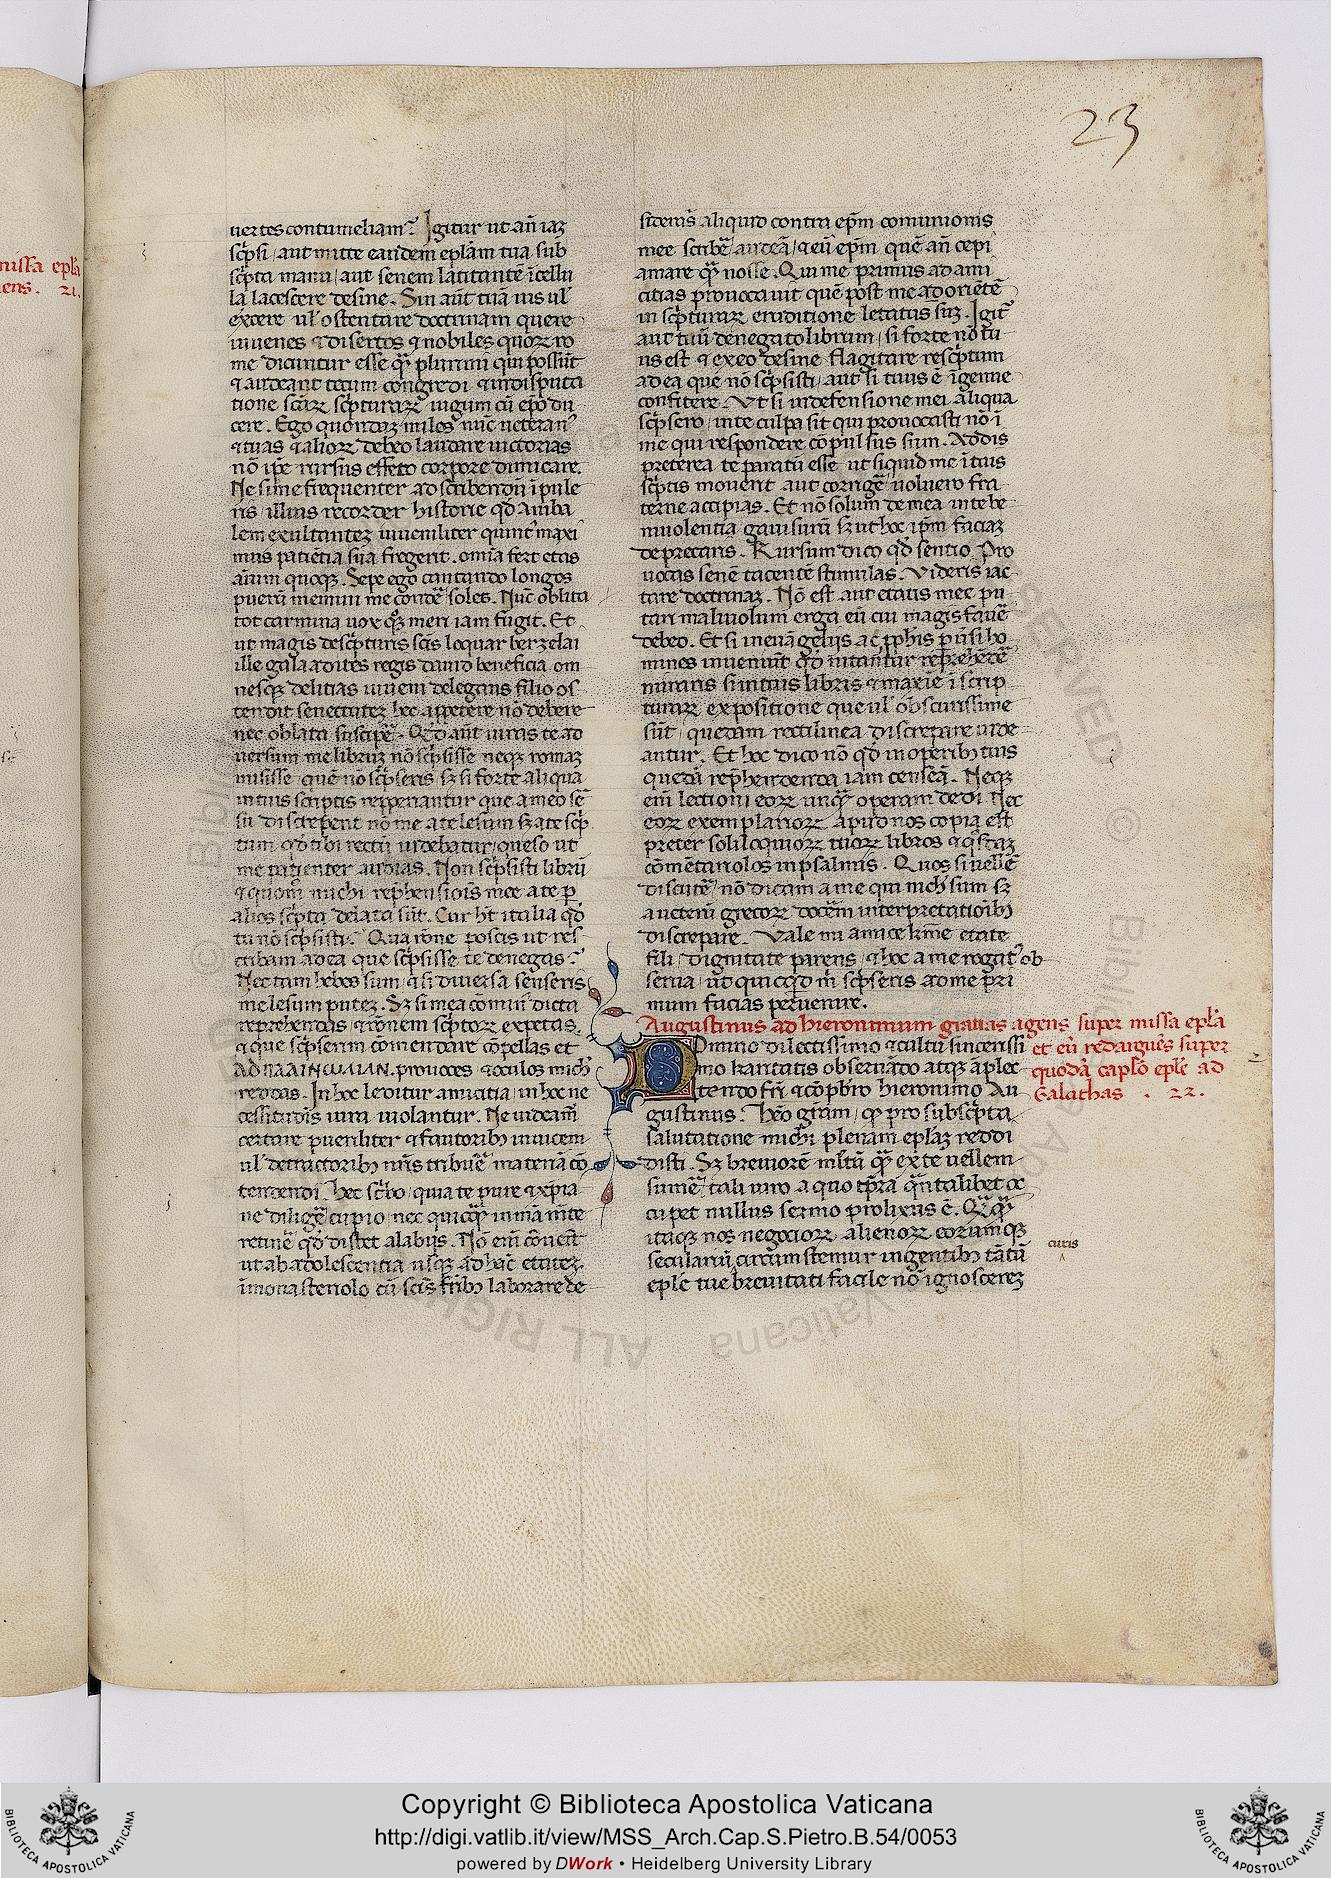 23
missa epl̃a
ens. 21.
uertes contumeliam? Igitur ut añ iaꝫ
sc̃psi / aut mitte eandem epl̃am tua sub
sc̃pta manu / aut senem latitantẽ ĩ cellu
la lacescere desine. Sin aũt tuã uis ul̃
exc̃ere ul̃ ostentare doctrinam quere
iuuenes ⁊ disertos ⁊ nobiles quoꝝ ro
me dicuntur esse qꝫ plurimi qui possũt
⁊ audeant tecum congredi ⁊ in disputa
tione sc̃aꝝ sc̃pturaꝝ iugum cũ ep̃o du
cere. Ego quondaꝫ miles nũc ueteran᷒
⁊ tuas ⁊ alioꝝ debeo laudare uictorias
nõ ip̃e rursus effeto corpore dimicare.
Ne si me frequenter ad scribendũ ĩpule
ris / illius recorder historie qđ aniba
lem exultanteꝫ iuueniliter quint᷒ maxi
mus patiẽtia sua fregerit. omĩa fert etas
aĩum quoqꝫ. Sepe ego cantando longos
puerũ memini me condẽ soles. Nũc oblita
tot carmina uox qꝫ meri iam fugit. Et
ut magis de sc̃pturis sc̃is loquar berzelai
ille galaadites regis dauid beneficia om
nesqꝫ delitias iuueni delegans filio os
tendit senectuteꝫ hec appetere nõ debere
nec oblata suscipẽ. Qđ aũt iuras te ad
uersum me libruꝫ nõ sc̃psisse neqꝫ romaꝫ
misisse quẽ nõ sc̃pseris sꝫ si forte aliqua
in tuis scriptis repperiantur que a meo sẽ
su discrepent nõ me a te lesum sꝫ a te sc̃p
tum qđ tibi rectũ uidebatur / queso ut
me patienter audias. Non sc̃psisti librũ
⁊ quom̃ michi reprehensiõis mee a te ꝑ
alios sc̃pta delata sũt. Cur hꝫ italia qđ
tu nõ sc̃psisti? Qua rõne poscis ut res
cribam ad ea que sc̃psisse te denegas?
Nec tam hebes sum / ut si diuersa senseris
me lesum puteꝫ. Sꝫ si mea cõmin᷒ dicta
reprehendas ⁊ rõnem sc̃ptoꝝ expetas
⁊ que sc̃pserim cõmendare cõpellas et
provoces ⁊ oculos mich̃
reddas. In hoc leditur amicitia / in hoc ne
cessitudĩs iura uiolantur. Ne uideam̃
certare pueriliter ⁊ fautoribꝫ inuicem
ul̃ detractoribꝫ nr̃is tribuẽ materiã cõ
tendendi. hec sc̃bo / quia te pure ⁊ xp̃ia
ne diligẽ cupio / nec quicqꝫ in mã mẽte
retinẽ qđ distet a labijs. Nõ eni᷒ cõuenit
ut ab adolescentia usqꝫ ad hãc etateꝫ
ĩ monasteriolo cũ sc̃is fr̃ibꝫ labora re de
sideris̃ aliquid contra ep̃m comunionis
mee scribẽ / audeã / ⁊ eũ ep̃m quẽ añ cepi
amare qꝫ nosse. Qui me primus ad ami
citias prouocauit quẽ post me ad oriẽtẽ
in sc̃pturaꝝ eruditione letatus suꝫ. Igit̃
aut tuũ denegato librum / si forte nõ tu
us est ⁊ ex eo desine flagitare resc̃ptum
ad ea que nõ sc̃psisti / aut si tuus ẽ ĩgenue
confitere. Vt si in defensione mei aliqua
sc̃psero / in te culpa sit qui prouocasti nõ ĩ
me qui respondere cõpulsus sum. Addis
preterea te paratũ esse ut si quid me ĩ tuis
sc̃ptis mouerit aut corrigẽ uoluero fra
terne accipias. Et nõ solum de mea in te be
niuolentia gauisurũ sꝫ ut hoc ip̃m faciaꝫ
deprecaris. Rursum dico qđ sentio. Pro
uocas senẽ tacentẽ stimulas. Videris iac
tare doctrinaꝫ. Nõ est aut etatis mee pu
tari maliuolum erga eũ cui magis fauẽ
debeo. Et si in euãgelijs ac ꝓphis puĩsi ho
mines inueniũt qđ nitantur reprehẽdẽ
miraris si in tuis libris ⁊ maxĩe ĩ scrip
turaꝝ expositione que ul̃ obscurissime
sũt / quedam recti linea discrepare uide
antur. Et hoc dico nõ qđ in operibꝫ tuis
quedã rep̃hendenda iam censeã. Neqꝫ
eni᷒ lectioni eoꝝ unqꝫ operam dedi Nec
eoꝝ exemplarioꝝ apud nos copia est
preter soliloquioꝝ tuoꝝ libros ⁊ qsdaꝫ
cõmẽtariolos in psalmis. Quos si uellẽ
discutẽ nõ dicam a me qui nich̃ sum sꝫ
a ueterũ grecoꝝ docẽm interpretatiõibꝫ
discrepare. Vale mi amice kr̃me etate
fili dignitate parens / ⁊ hoc a me rogat᷒ ob
serua / ut quicqđ m̃ sc̃pseris ad me pri
mum facias peruenire.
Augustinus ad hieronimum gratias agens super missa epl̃a
et eũ redarguẽs super
quodã capl̃o epl̃e ad
Galathas . 22.
Domino dilectissimo ⁊ cultu sincerissi
mo karitatis obseruãdo atqꝫ aplec
tendo fr̃i ⁊ cõpb̃ro hieronimo Au
gustinus. Hẽo gr̃am / qđ pro subsc̃pta
salutatione michi plenam epl̃aꝫ reddi
disti. Sꝫ breuiorẽ ml̃tũ qꝫ ex te uellem
sumẽ / tali uiro a quo tp̃ra qñtalibet oc
cupet nullus sermo prolixus ẽ. Qꝫqꝫ
itaqꝫ nos negocioꝝ alienoꝝ eorumqꝫ
seculariũ circũmstemur ingentibꝫ tãtũ
curis
epl̃e tue breuitati facile nõ ignoscereꝫ
Copyright © Biblioteca Apostolica Vaticana
http://digi.vatlib.it/view/MSS_Arch.Cap.S.Pietro.B.54/0053
powered by DWork • Heidelberg University Library
BIBLIOTECA APOSTOLICA VATICANA
BIBLIOTECA APOSTOLICA VATICANA